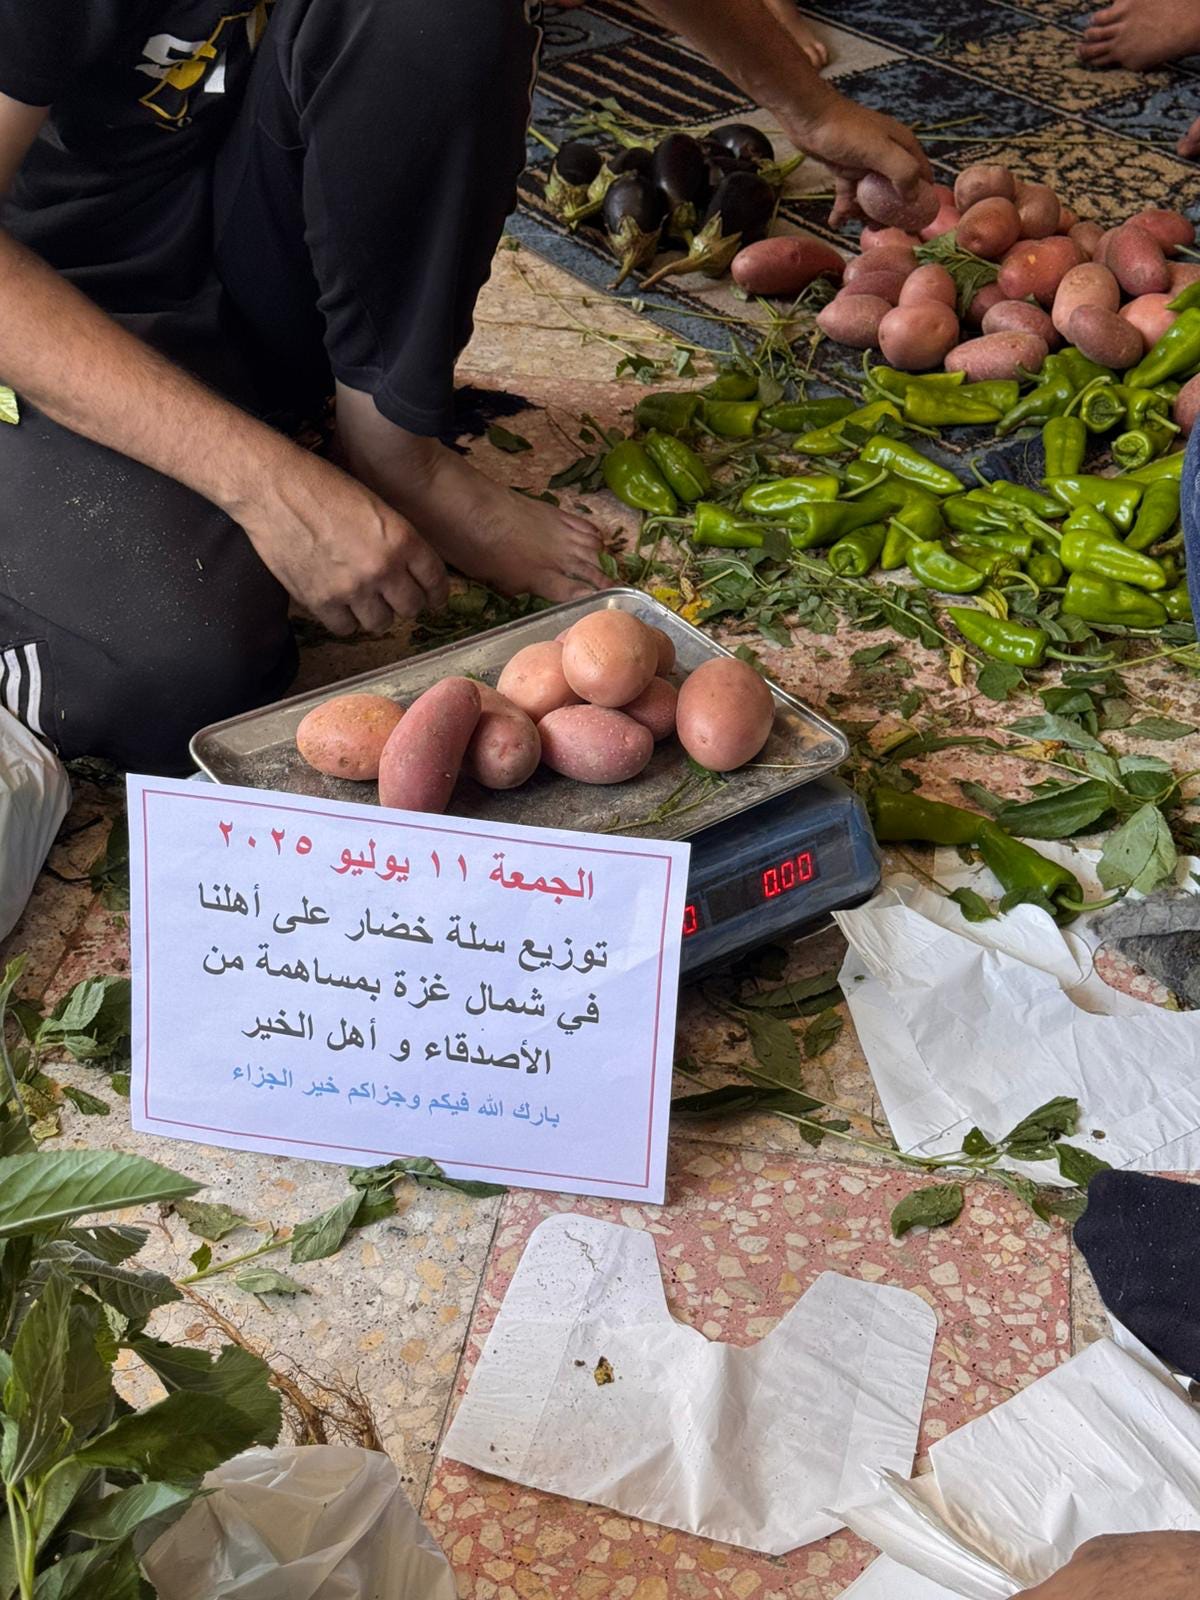 الجمعة ١١ يوليو ٢٠٢٥
توزيع سلة خضار على أهلنا
في شمال غزة بمساهمة من
الأصدقاء و أهل الخير
بارك الله فيكم وجزاكم خير الجزاء
0.00
0